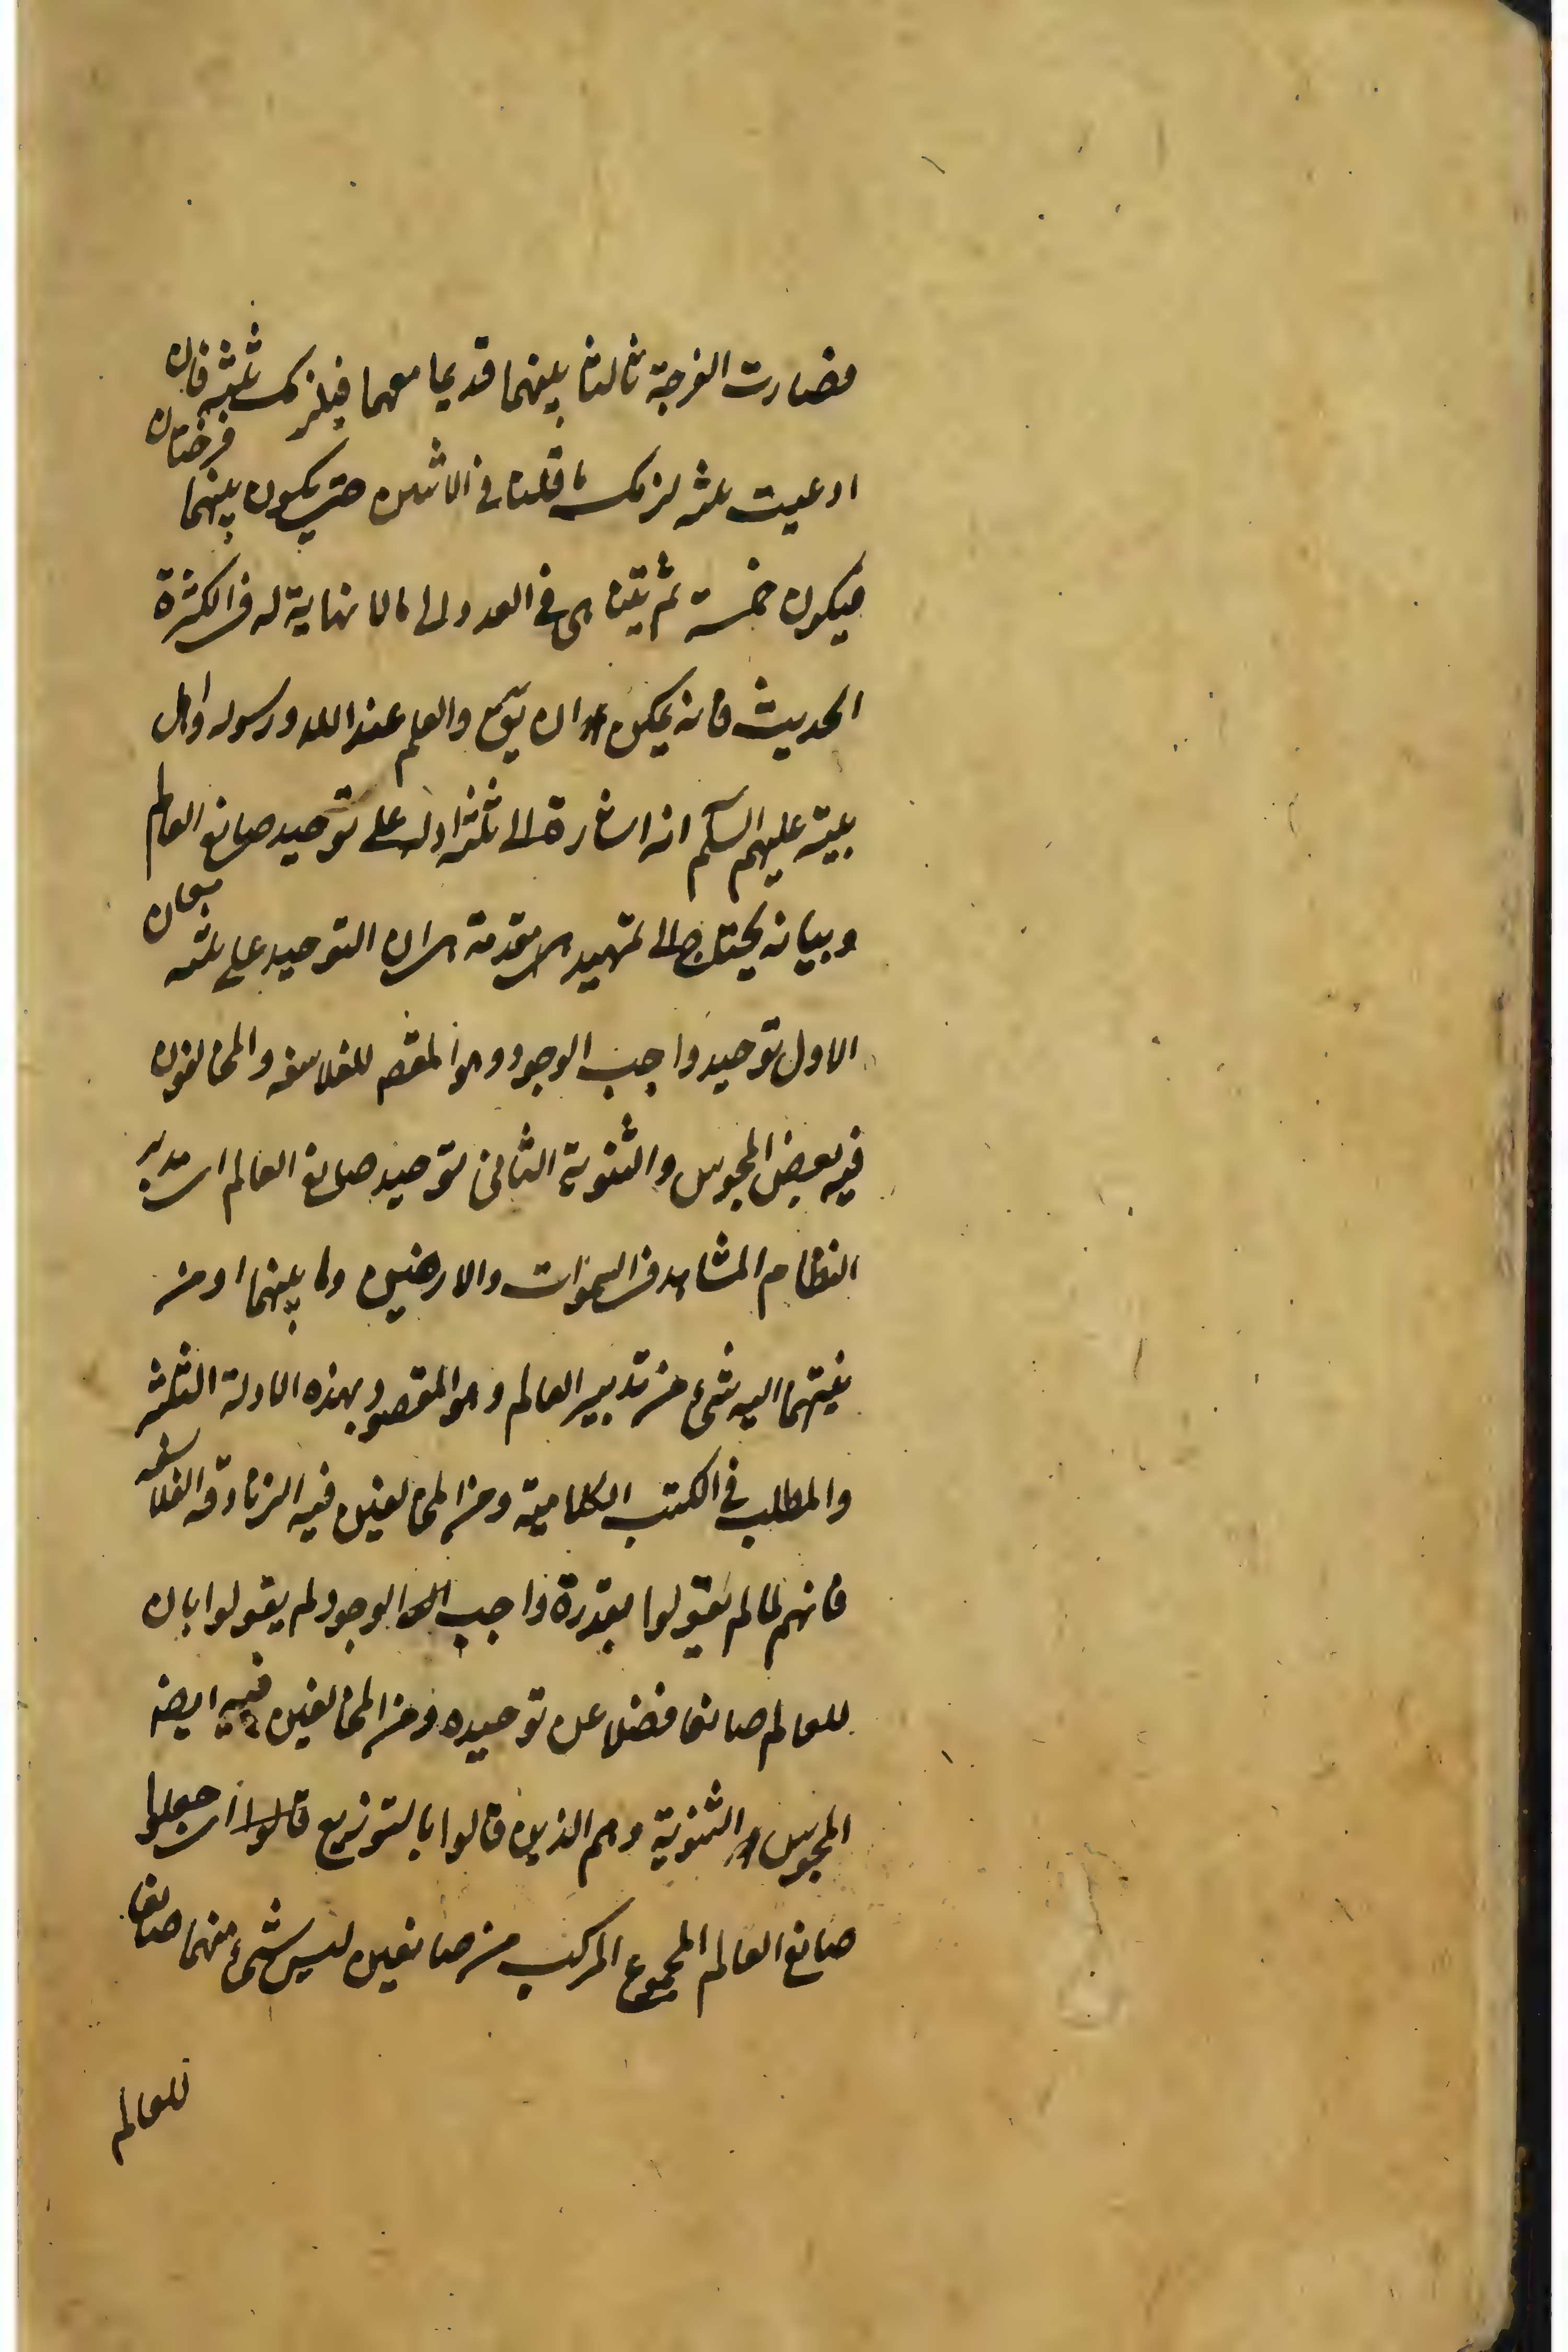 فصارت الفرجة ثالثا بينهما قديما معهما فيلزمك ثلثة فان
ادعيت ثلثه لزمك ما قلت في الاثنين حتى يكون بينهما فرجتان
فيكون خمسة ثم يتناهى في العدد الى ما لا نهاية له في الكثرة
الحديث فانه يمكن ان يق والعلم عند الله ورسوله واهل
بيته عليهم السلم انه اشارة الى ثلثه ادلة على توحيد صانع العالم
وبيانه يحتاج الى تمهيد مقدمة هى ان التوحيد على ثلثه معان
الاول توحيد واجب الوجود وهو المقصد للفلاسفه والمخالفون
فيه بعض المجوس والثنوية الثاني توحيد صانع العالم اى مدبر
النظام المشاهد في السموات والارضين وما بينهما او من
ينتهى اليه شىء من تدبير العالم وهو المقصود بهذه الادلة الثلثه
والمطلب في الكتب الكلامية ومن المخالفين فيه الزنادقه الفلاسفه
فانهم لما لم يقولوا بقدرة واجب الوجود لم يقولوا بان
للعالم صانعا فضلا عن توحيده ومن المخالفين فيه ايضه
المجوس والثنوية وهم الذين قالوا بالتوزيع قالوا اى جعلوا
صانع العالم المجموع المركب من صانعين ليس شىء منهما صانعا
للعالم